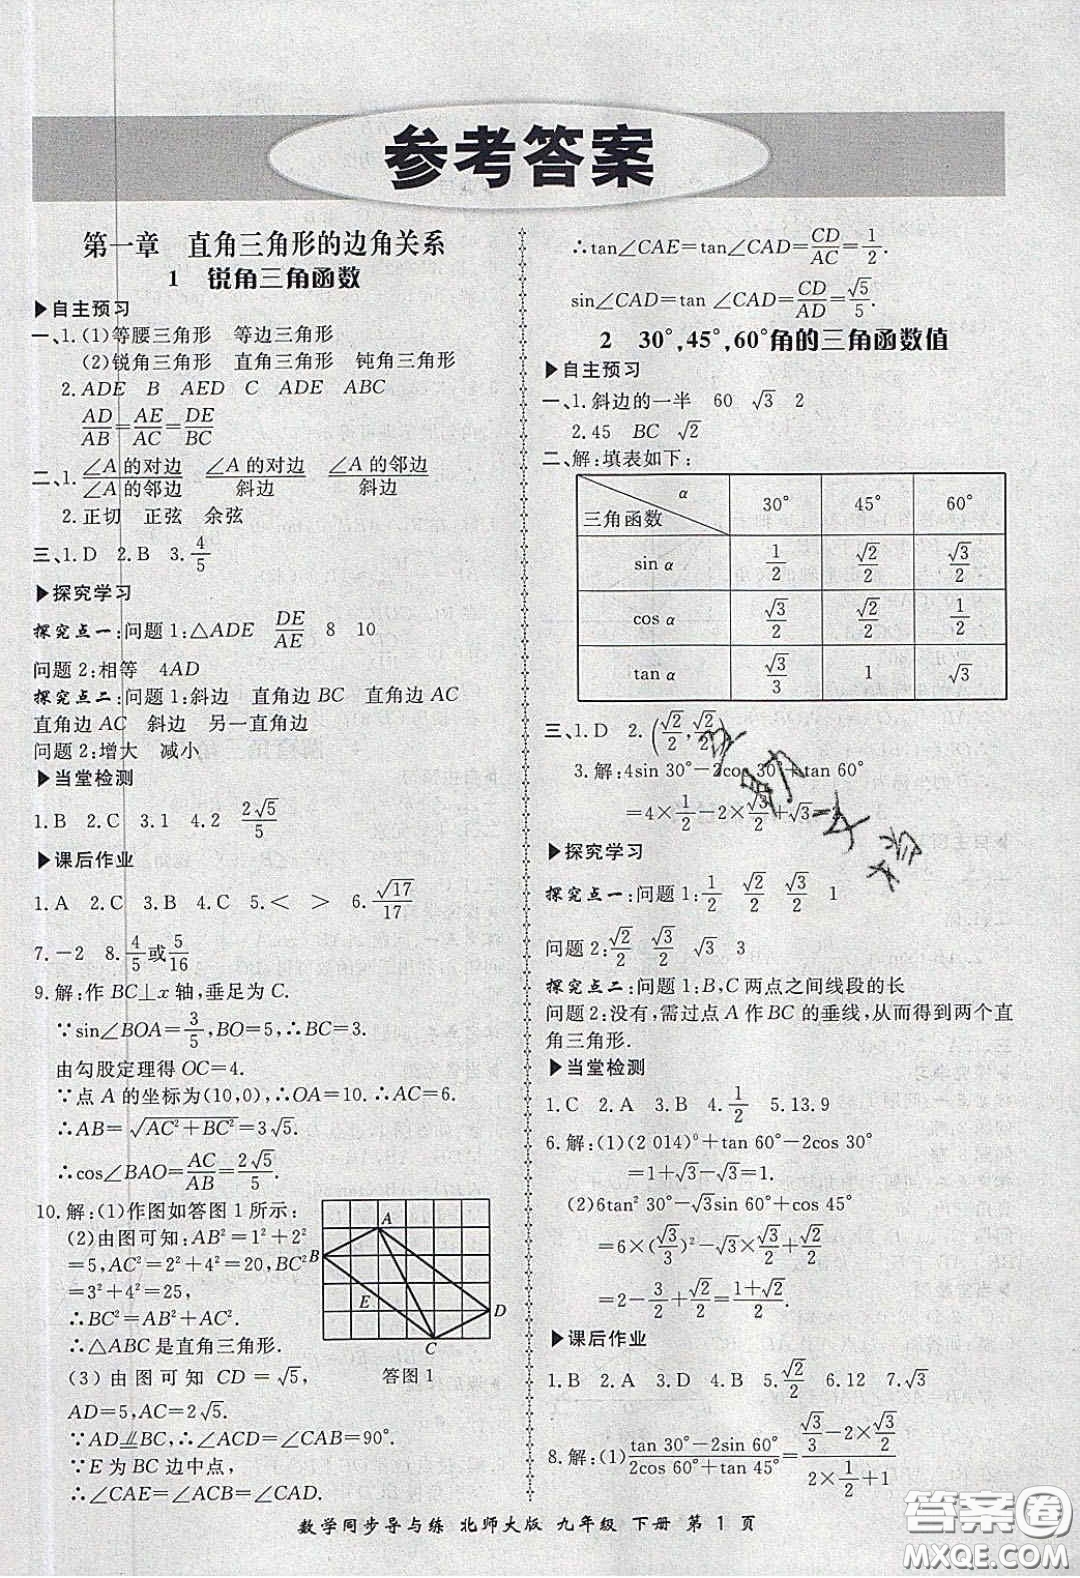 参考答案
第一章 直角三角形的边角关系
1 锐角三角函数
▶自主预习
一、1.(1)等腰三角形 等边三角形
(2)锐角三角形 直角三角形 钝角三角形
2.ADE B AED C ADE ABC
AD/AB=AE/AC=DE/BC
二、1.∠A的对边/∠A的邻边 ∠A的对边/斜边 ∠A的邻边/斜边
2.正切 正弦 余弦
三、1.D 2.B 3.4/5
▶探究学习
探究点一:问题1:△ADE DE/AE 8 10
问题2:相等 4AD
探究点二:问题1:斜边 直角边BC 直角边AC
直角边AC 斜边 另一直角边
问题2:增大 减小
▶当堂检测
1.B 2.C 3.1 4.2 2√5/5
▶课后作业
1.A 2.C 3.B 4.C 5.< > 6.√17/17
7.-2 8.4/5或5/16
9.解:作BC⊥x轴,垂足为C.
∵sin∠BOA=3/5,BO=5,∴BC=3.
由勾股定理得OC=4.
∵点A的坐标为(10,0),∴OA=10.∴AC=6.
∴AB=√(AC²+BC²)=3√5.
∴cos∠BAO=AC/AB=2√5/5.
10.解:(1)作图如答图1所示:
(2)由图可知:AB²=1²+2²
=5,AC²=2²+4²=20,BC²
=3²+4²=25,
∴BC²=AB²+AC²
∴△ABC是直角三角形.
(3)由图可知CD=√5,
AD=5,AC=2√5.
∵AD⫫BC,∴∠ACD=∠CAB=90°.
∵E为BC边中点,
∴∠CAE=∠ACB=∠CAD.
A
B
E
D
C
答图1
∴tan∠CAE=tan∠CAD=CD/AC=1/2.
sin∠CAD=tan ∠CAD=CD/AD=√5/5.
2 30°,45°,60°角的三角函数值
▶自主预习
一、1.斜边的一半 60 √3 2
2.45 BC √2
二、解:填表如下:
三角函数 α 30° 45° 60°
sin α 1/2 √2/2 √3/2
cos α √3/2 √2/2 1/2
tan α √3/3 1 √3
三、1.D 2.(√2/2,√2/2)
3.解:4sin 30°-2cos 30°+tan 60°
=4×1/2-2×√3/2+√3=2
▶探究学习
探究点一:问题1:1/2 √2/2 √3/2 1
问题2:√2/2 √3/2 √3 3
探究点二:问题1:B,C两点之间线段的长
问题2:没有,需过点A作BC的垂线,从而得到两个直
角三角形.
▶当堂检测
1.C 2.A 3.B 4.1/2 5.13.9
6.解:(1)(2 014)⁰+tan 60°-2cos 30°
=1+√3-√3=1.
(2)6tan² 30°-√3sin 60°+cos 45°
=6×(√3/3)²-√3×√3/2+√2/2
=2-3/2+√2/2=(1+√2)/2.
▶课后作业
1.B 2.A 3.A 4.B 5.√2/2 6.12 7.√3
8.解:(1)(tan 30°-2sin 60°)/(2cos 60°+tan 45°)=(√3/3-2×√3/2)/(2×1/2+1)
数学同步导与练 北师大版 九年级 下册 第1页
答案圈
MXQE.COM